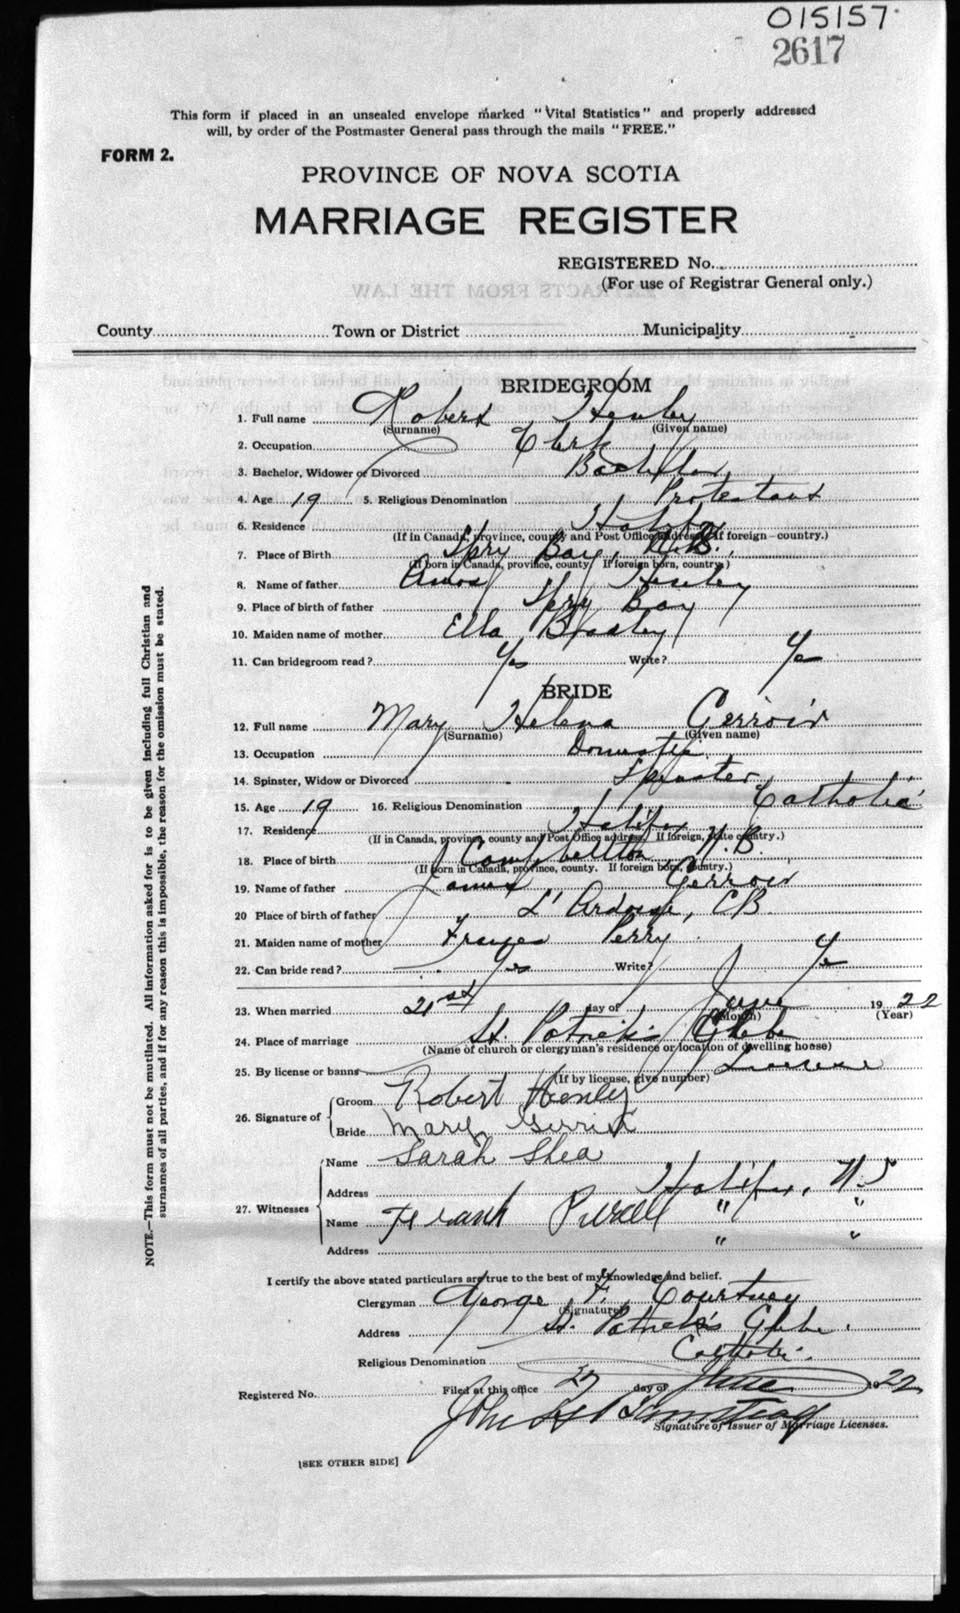 015157
2617
This form if placed in an unsealed envelope marked "Vital Statistics" and properly addressed
will, by order of the Postmaster General pass through the mails "FREE."
FORM 2.
PROVINCE OF NOVA SCOTIA
MARRIAGE REGISTER
REGISTERED No.
(For use of Registrar General only.)
EXTRACTS FROM THE LAW
County Town or District Municipality
BRIDEGROOM
1. Full name Robert Henley
(Surname) (Given name)
2. Occupation Clerk
3. Bachelor, Widower or Divorced Bachelor
4. Age 19 5. Religious Denomination Protestant
6. Residence Halifax
(If in Canada, province, county and Post Office address. If foreign—country.)
7. Place of Birth Spry Bay,
(If born in Canada, province, county. If foreign born, country.)
8. Name of father Amos Henley
9. Place of birth of father Spry Bay
10. Maiden name of mother Ella
11. Can bridegroom read? Yes Write? Yes
BRIDE
12. Full name Mary Helena Gerroir
(Surname) (Given name)
13. Occupation Domestic
14. Spinster, Widow or Divorced Spinster
15. Age 19 16. Religious Denomination Catholic
17. Residence Halifax
(If in Canada, province, county and Post Office address. If foreign, state country.)
18. Place of birth Campbellton N.B.
(If born in Canada, province, county. If foreign born, country.)
19. Name of father James Gerroir
20 Place of birth of father L'Ardoise, CB
21. Maiden name of mother Frances Perry
22. Can bride read? Yes Write? Yes
23. When married 21st day of June 1922
(Month) (Year)
24. Place of marriage St. Patrick's Glebe
(Name of church or clergyman's residence or location of dwelling house)
25. By license or banns License
(If by license, give number)
26. Signature of Groom Robert Henley
Bride Mary
27. Witnesses Name Sarah Shea
Address Halifax, N.S
Name Frank Purcell " "
Address " "
I certify the above stated particulars are true to the best of my knowledge and belief.
Clergyman George F. Courtney
(Signature)
Address St. Patrick's Glebe.
Religious Denomination Catholic.
Registered No. Filed at this office 27 day of June 1922
John
Signature of Issuer of Marriage Licenses.
[SEE OTHER SIDE]
NOTE—This form must not be mutilated. All information asked for is to be given including full Christian and
surnames of all parties, and if for any reason this is impossible, the reason for the omission must be stated.